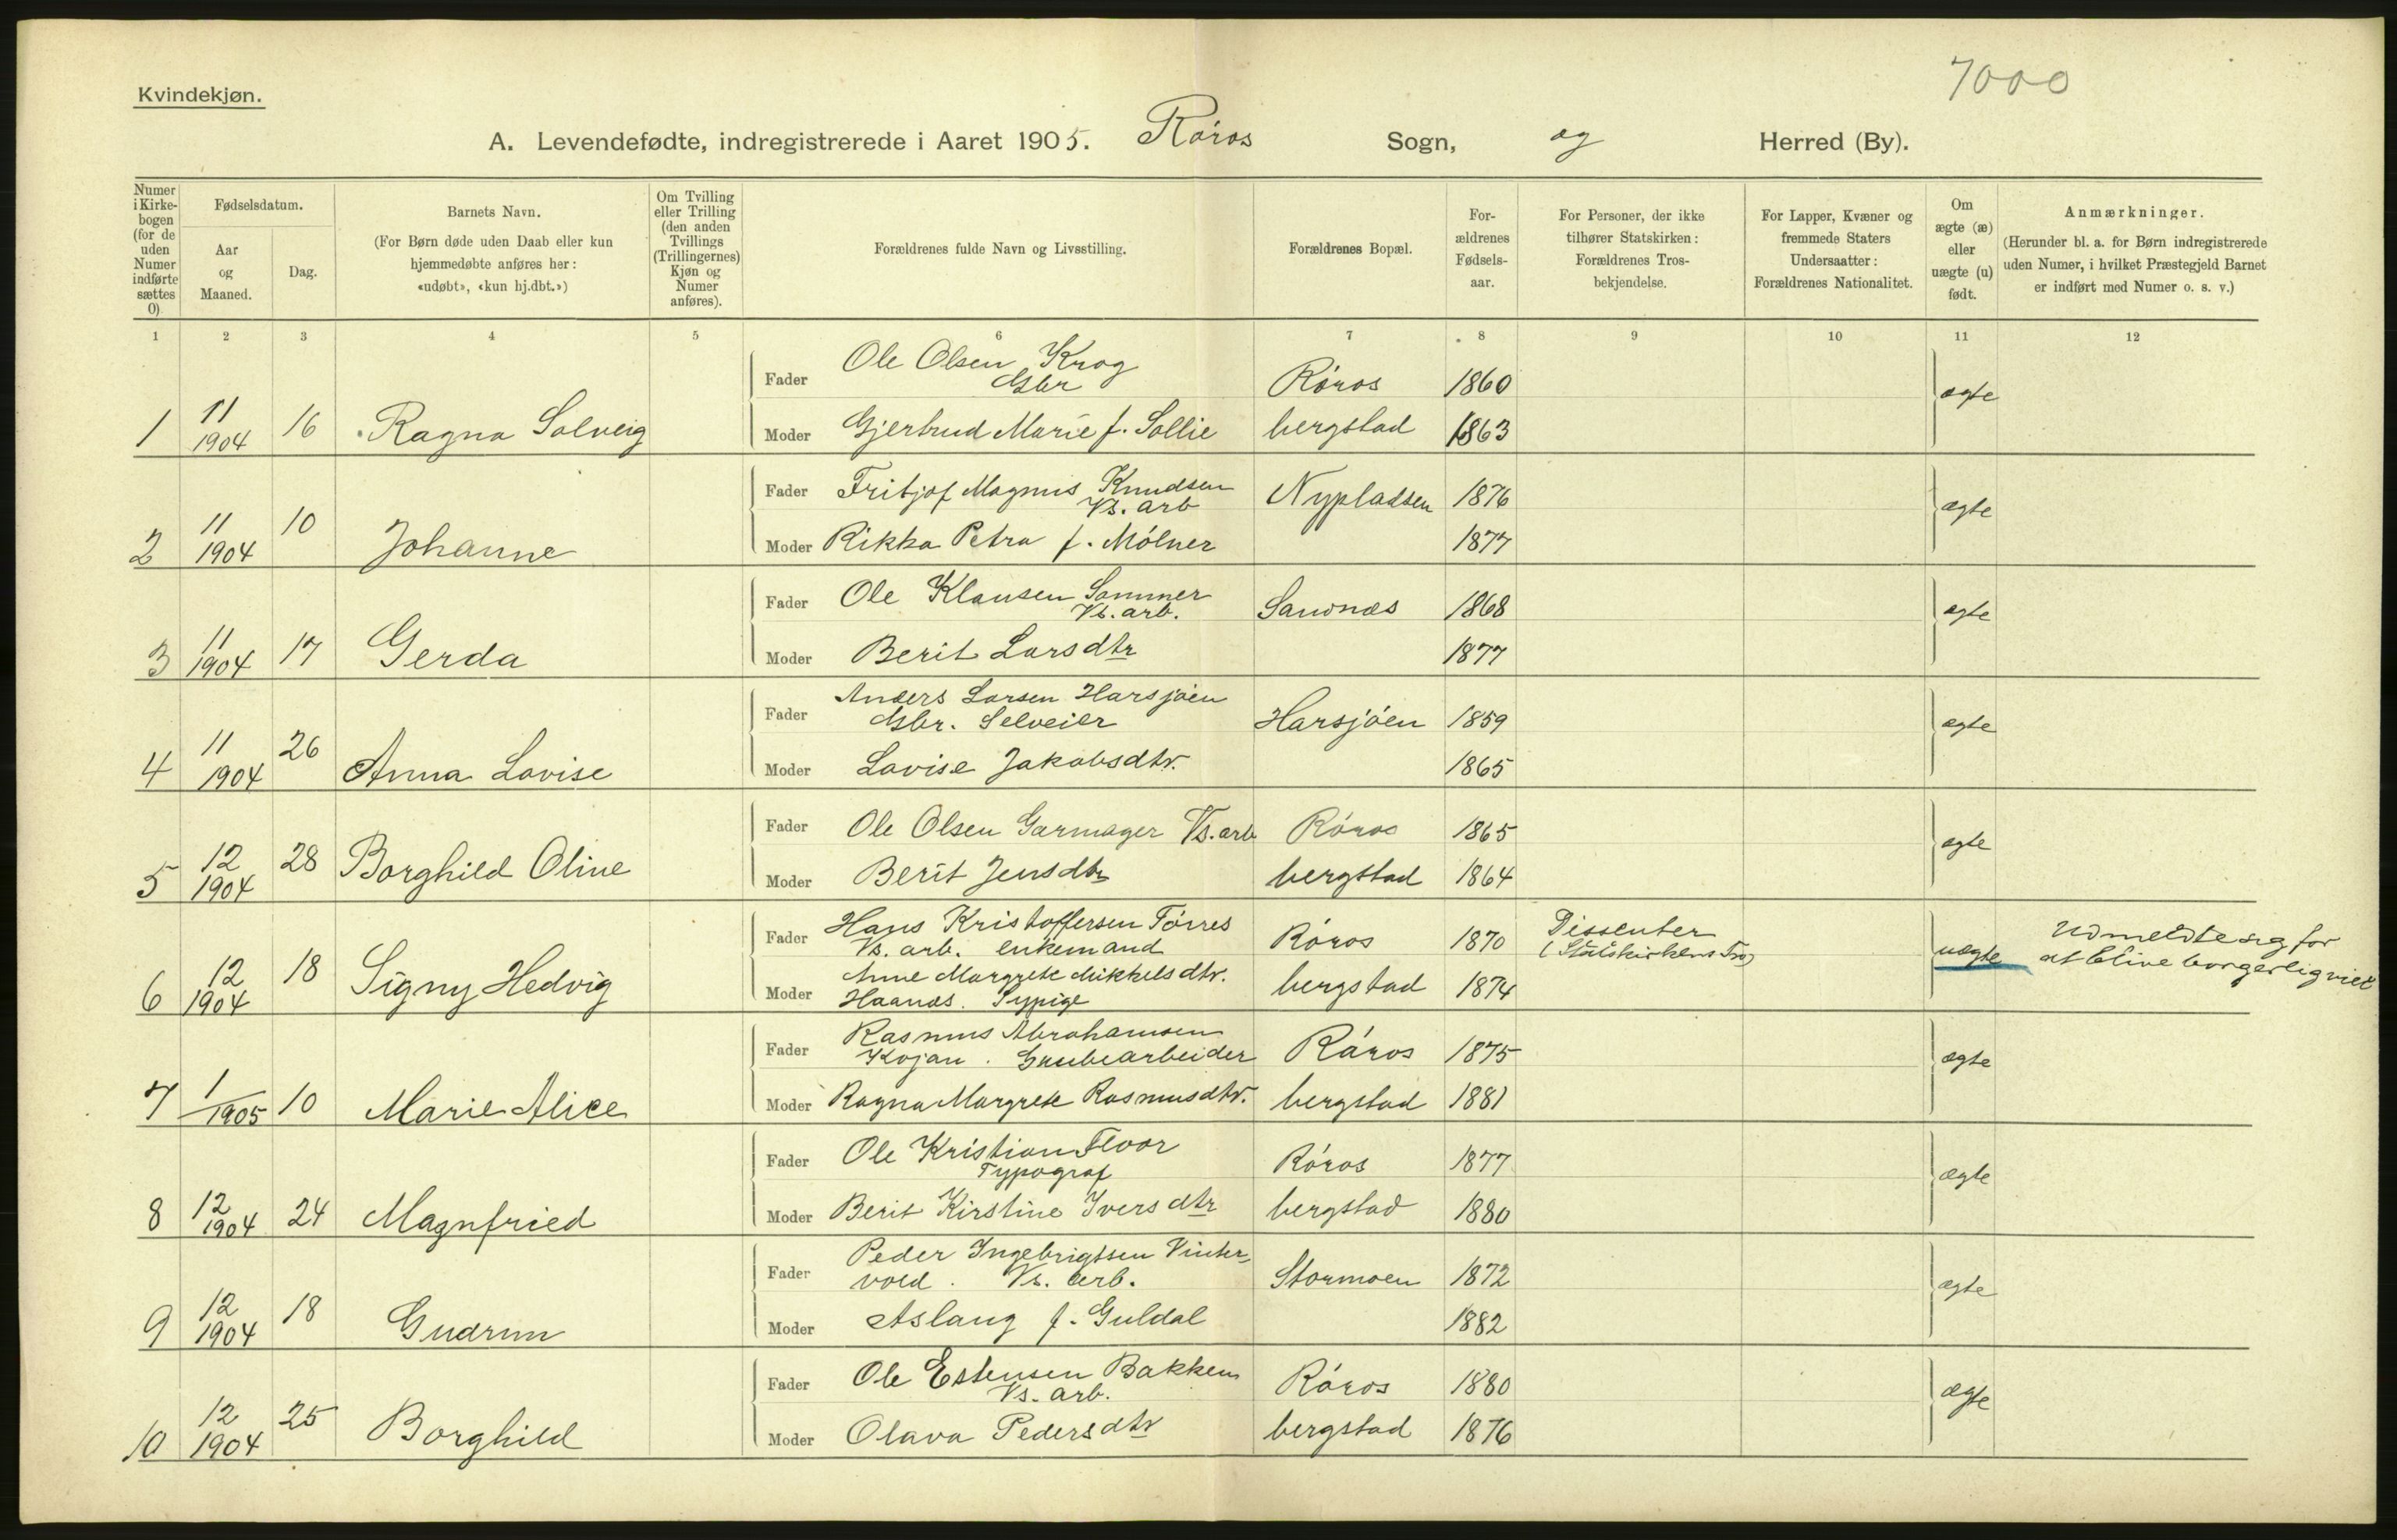 7000
Kvindekjøn.
A. Levendefødte, indregistrerede i Aaret 1905. Røros Sogn, og Herred (By).
Numer i Kirkebogen (for de uden Numer indførte sættes 0)
Fødselsdatum.
Aar og Maaned.
Dag.
Barnets Navn.
(For Børn døde uden Daab eller kun hjemmedøbte anføres her: «udøbt», «kun hj.dbt.»)
Om Tvilling eller Trilling (den anden Tvillings (Trillingernes) Kjøn og Numer anføres).
Forældrenes fulde Navn og Livsstilling.
Forældrenes Bopæl.
Forældrenes Fødselsaar.
For Personer, der ikke tilhører Statskirken: Forældrenes Trosbekjendelse.
For Lapper, Kvæner og fremmede Staters Undersaatter: Forældrenes Nationalitet.
Om ægte (æ) eller uægte (u) født.
Anmærkninger.
(Herunder bl. a. for Børn indregistrerede uden Numer, i hvilket Præstegjeld Barnet er indført med Numer o. s. v.)
1 2 3 4 5 6 7 8 9 10 11 12
Fader Ole Olsen Krog Gbr Røros 1860 ægte
1 11 1904 16 Ragna Solveig
Moder Gjertrud Marie f. Sollie bergstad 1863
Fader Fritjof Magnus Knudsen Vs. arb Nypladsen 1876 ægte
2 11 1904 10 Johanne
Moder Rikka Petra f. Mølner 1877
Fader Ole Klausen Sommer Vs. arb. Sandnæs 1868 ægte
3 11 1904 17 Gerda
Moder Berit Larsdtr 1877
Fader Anders Larsen Harsjøen Gbr. Selveier Harsjøen 1859 ægte
4 11 1904 26 Anna Lovise
Moder Lovise Jakobsdtr. 1865
Fader Ole Olsen Garmager Vs. arb Røros 1865 ægte
5 12 1904 28 Borghild Oline
Moder Berit Jensdtr bergstad 1864
Fader Hans Kristoffersen Tørres Vs. arb. enkemand Røros 1870 Dissenter (Statskirkens Tro) uægte Udmeldte sig for at blive borgerlig viet
6 12 1904 18 Signy Hedvig
Moder Anne Margrete Mikkelsdtr. Haanæs. Sypige bergstad 1874
Fader Rasmus Abrahamsen Kojan. Grubearbeider Røros 1875 ægte
7 1 1905 10 Marie Alice
Moder Ragna Margrete Rasmusdtr. bergstad 1881
Fader Ole Kristian Floor Typograf Røros 1877 ægte
8 12 1904 24 Magnfried
Moder Berit Kirstine Iversdtr bergstad 1880
Fader Peder Ingebrigtsen Vintervold. Vs. arb. Stormoen 1872 ægte
9 12 1904 18 Gudrun
Moder Aslaug f. Guldal 1882
Fader Ole Estensen Bakken Vs. arb. Røros 1880 ægte
10 12 1904 25 Borghild
Moder Olava Pedersdtr bergstad 1876